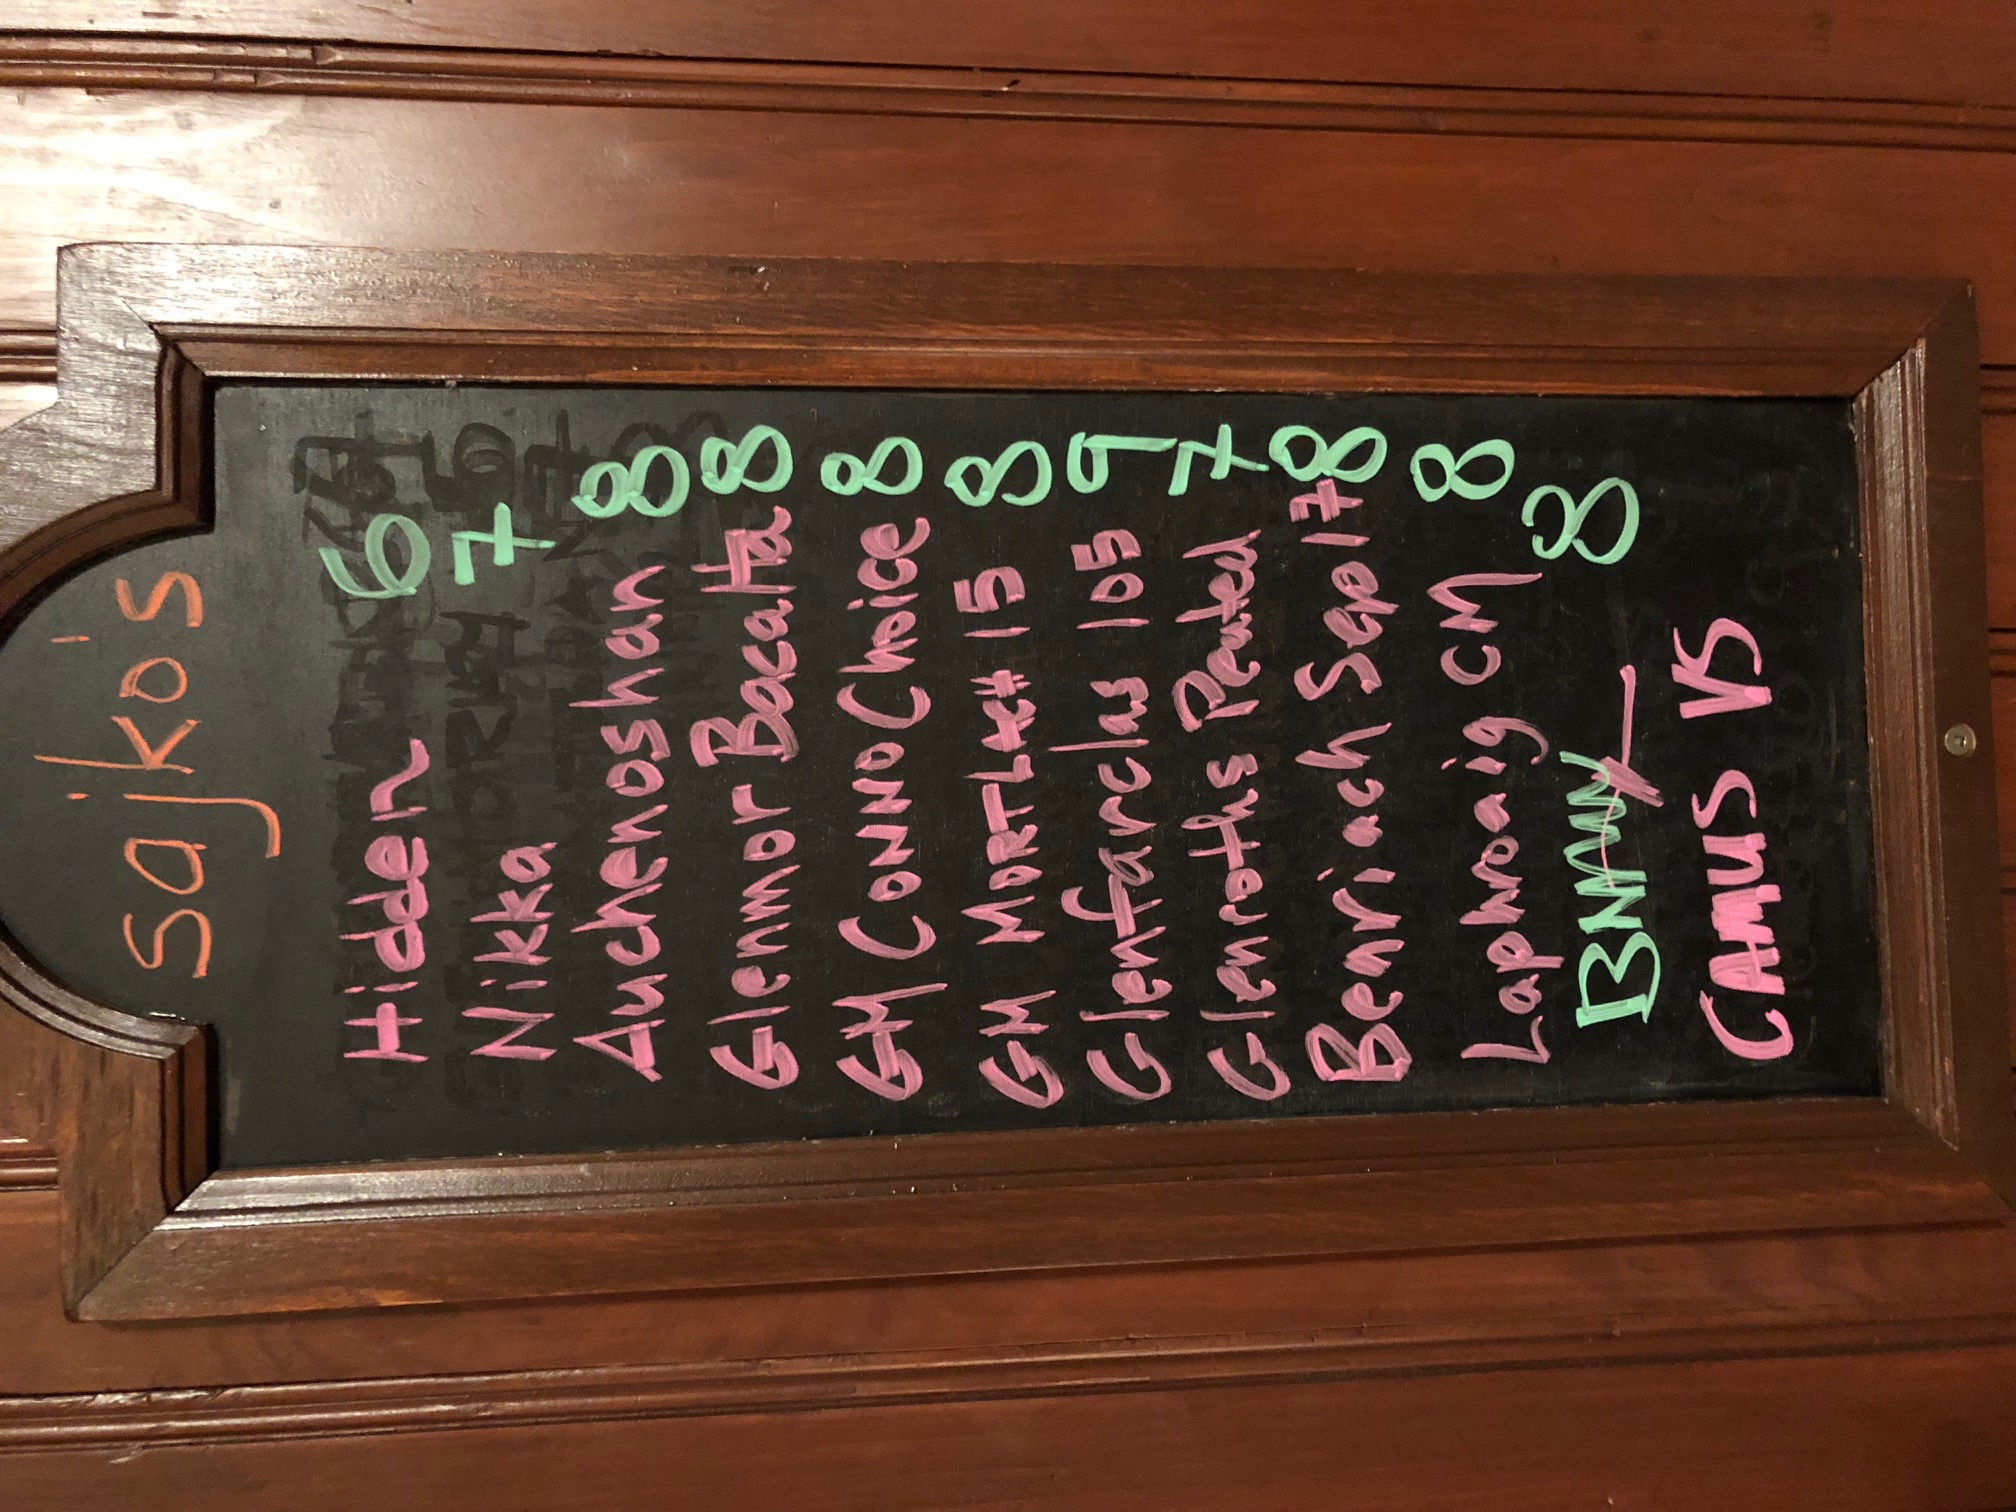 sajko's
Hidden 6
Nikka 7
Auchenoshan 8
Glenmor Bacalta 8
GM CONNO Choice 8
GM MORTLACH 15 8
Glenfarclas 105 9
Glenroths Peated 7
Benriach Sep 17 8
Laphroaig CM 8
8
CAMUS VS